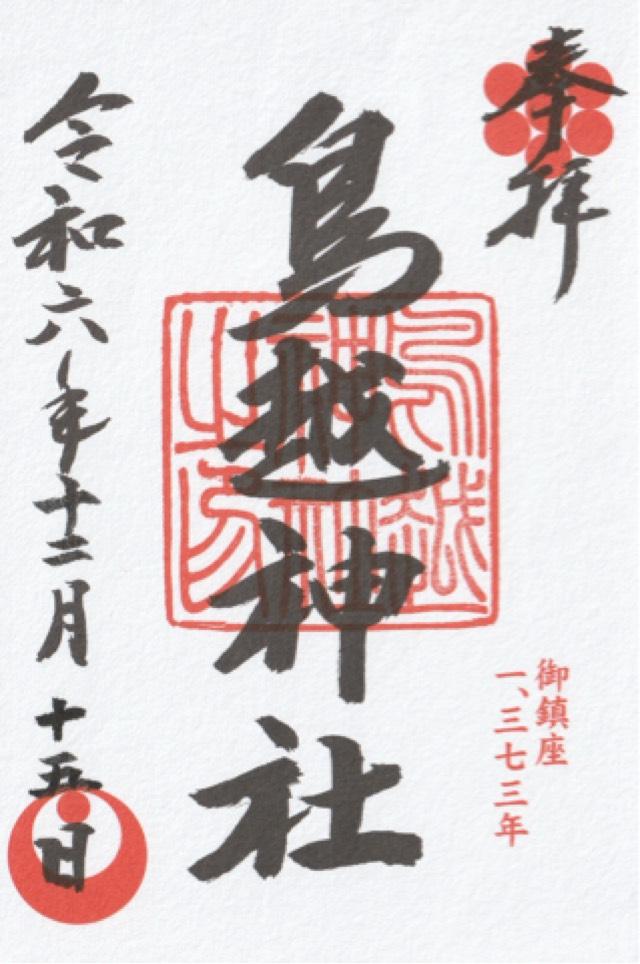 奉拝
鳥越神社
鳥越神社之印
御鎮座
一、三七三年
令和六年十二月十五日